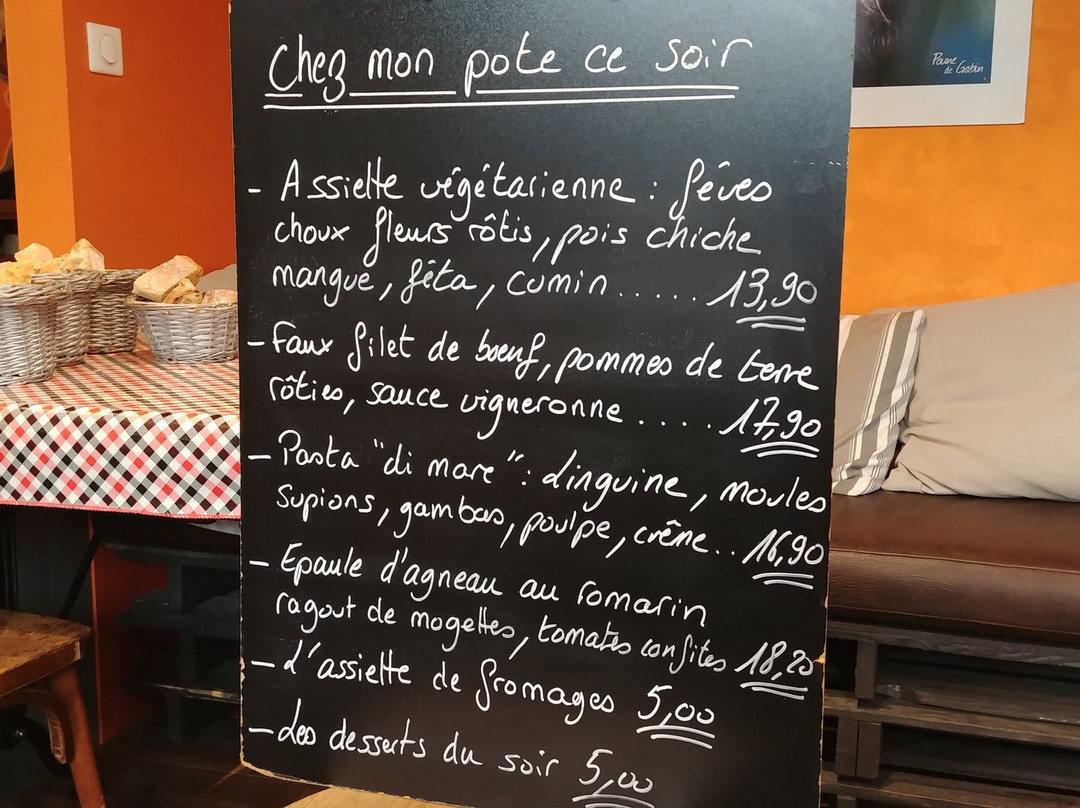 Chez mon pote ce soir
Poune
de Gabin
- Assiette végétarienne : féves
choux fleurs rôtis, pois chiche
mangue, féta, cumin ..... 13,90
- Faux filet de bœuf, pommes de terre
rôties, sauce vigneronne .... 17,90
- Pasta "di mare" : linguine, moules
supions, gambas, poulpe, crême.. 16,90
- Epaule d'agneau au romarin
ragout de mogettes, tomates confites 18,20
- L'assiette de fromages 5,00
- Les desserts du soir 5,00